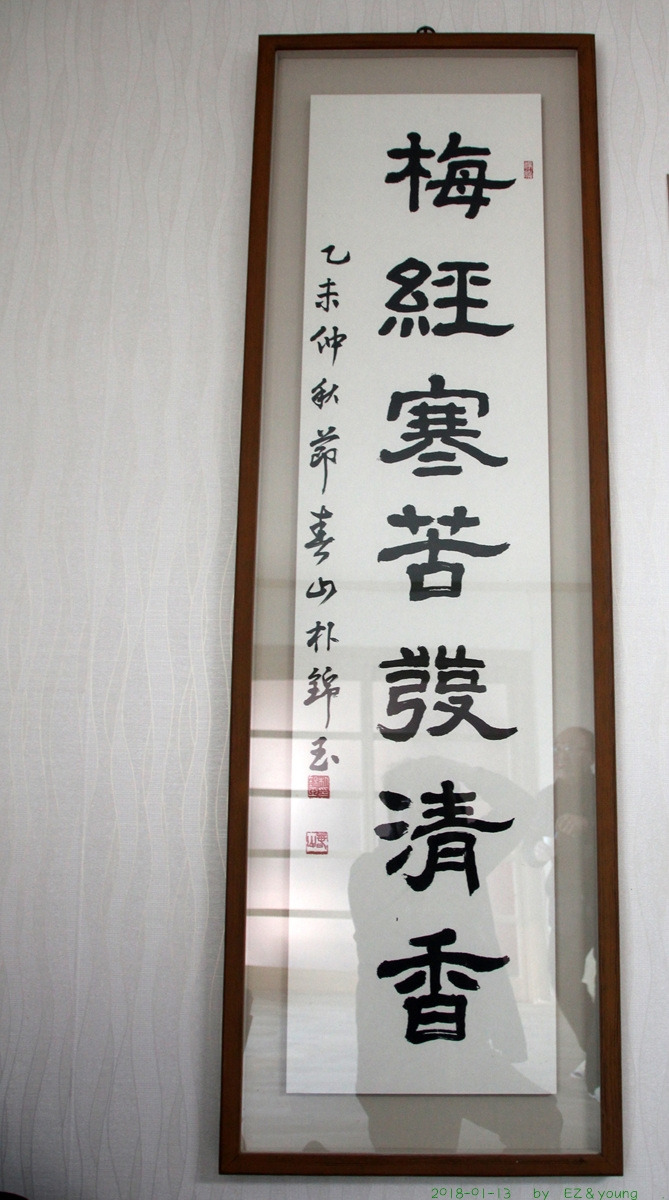 梅經寒苦發清香
乙未仲秋節春山朴錦玉
2018-01-13 by EZ & young